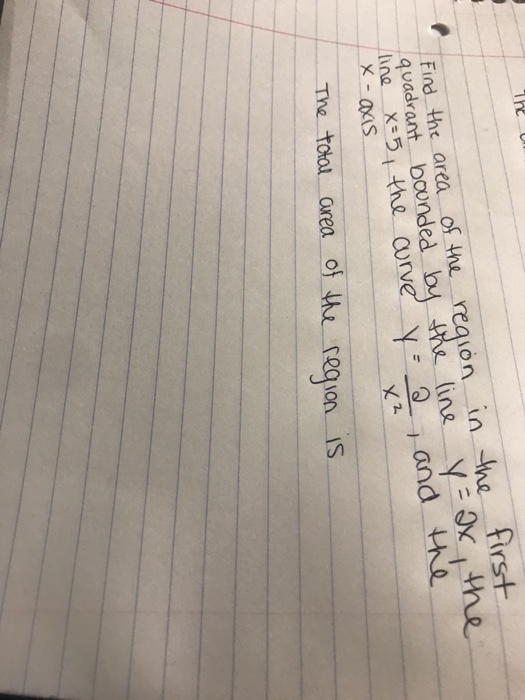 Find the area of the region in the first
quadrant bounded by the line y = 2x, the
line x=5, the curve y = 2/x², and the
x-axis
The total area of the region is